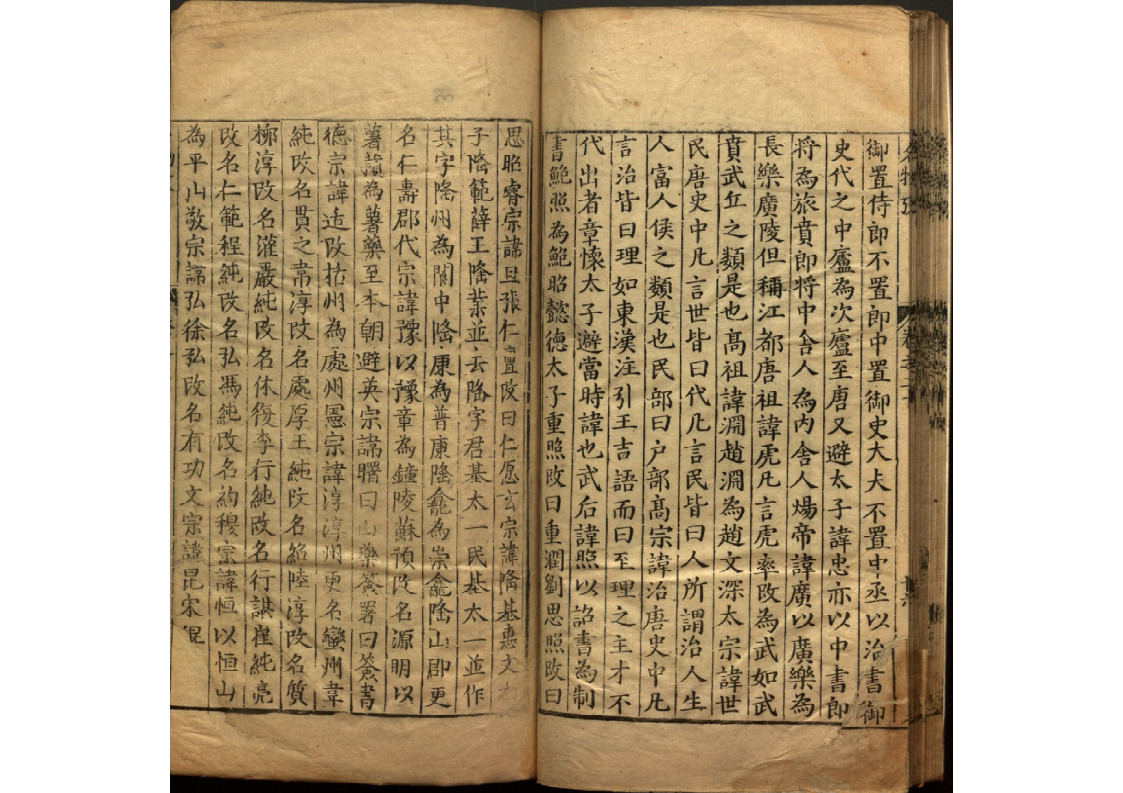 御置侍郎不置郎中置御史大夫不置中丞以治書御
史代之中廬為次廬至唐又避太子諱忠亦以中書郎
將為旅賁郎將中舍人為内舍人煬帝諱廣以廣樂為
長樂廣陵但稱江都唐祖諱虎凡言虎率改為武如武
賁武丘之類是也高祖諱淵趙淵為趙文深太宗諱世
民唐史中凡言世皆曰代凡言民皆曰人所謂治人生
人富人侯之類是也民部曰户部高宗諱治唐史中凡
言治皆曰理如東漢注引王吉語而曰至理之主才不
代出者章懷太子避當時諱也武后諱照以詔書為制
書鮑照為鮑昭懿德太子重照改曰重潤劉思照改曰
思昭睿宗諱旦張仁亶改曰仁愿玄宗諱隆基惠文太
子隆範薛王隆業並去隆字君基太一民基太一並作
其字隆州為閬中隆康為普康隆龕為崇龕隆山郡更
名仁壽郡代宗諱豫以豫章為鐘陵蘇預改名源明以
薯蕷為薯藥至本朝避英宗諱曙曰山藥簽署曰簽書
德宗諱适改括州為處州憲宗諱淳淳州更名蠻州韋
純改名貫之韋淳改名處厚王純改名紹陸淳改名質
柳淳改名灌嚴純改名休復李行純改名行諶崔純亮
改名仁範程純改名弘馮純改名約穆宗諱恒以恒山
為平山敬宗諱弘徐弘改名有功文宗諱昆宋混